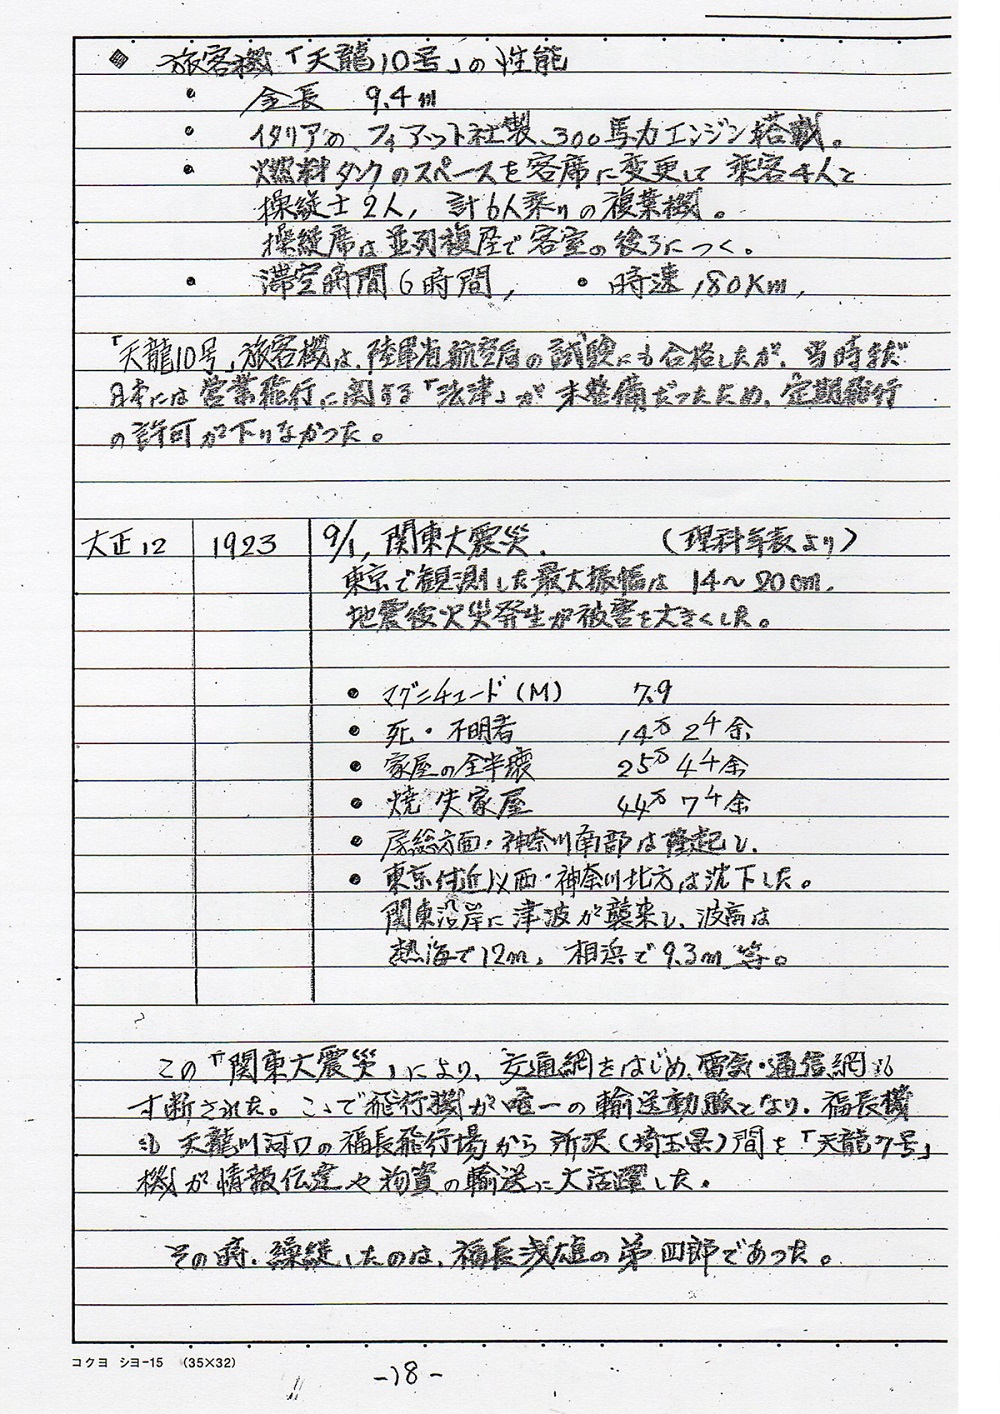 ◆ 旅客機「天龍10号」の性能
• 全長 9.4m
• イタリアの、フィアット社製、300馬力エンジン搭載。
• 燃料タンクのスペースを客席に変更して 乗客4人と
操縦士2人, 計6人乗りの複葉機。
操縦席は並列複座で客室の後ろにつく。
• 滞空時間6時間, • 時速180Km,
「天龍10号」旅客機は、陸軍省航空局の試験にも合格したが、当時まだ
日本には営業飛行に関する「法律」が未整備だったため、定期飛行
の許可が下りなかった。
大正12 1923 9/1, 関東大震災. (理科年表より)
東京で観測した最大振幅は 14〜20cm.
地震後火災発生が被害を大きくした。
• マグニチュード(M) 7.9
• 死・不明者 14万2千余
• 家屋の全半壊 25万4千余
• 焼失家屋 44万7千余
• 房総方面・神奈川南部は隆起し、
• 東京付近以西・神奈川北方は沈下した。
関東沿岸に津波が襲来し、波高は
熱海で12m, 相浜で9.3m等。
この「関東大震災」により、交通網をはじめ、電気・通信網も
寸断された。ここで飛行機が唯一の輸送動脈となり、福長機
も 天龍川河口の福長飛行場から所沢(埼玉県)間を「天龍7号」
機が情報伝達や物資の輸送に大活躍した.
その時、操縦したのは、福長浅雄の弟 四郎であった。
コクヨ シヨ-15 (35×32)
-18-